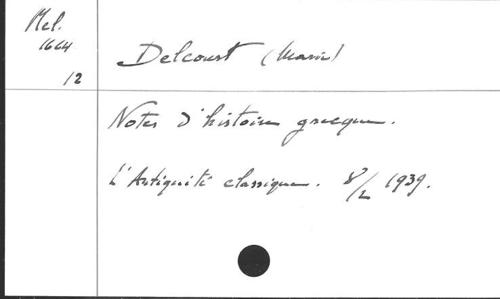 Mel.
1664
12
Delcourt (Marie)
Notes d'histoire grecque.
L'Antiquité classique. 8/2 1939.